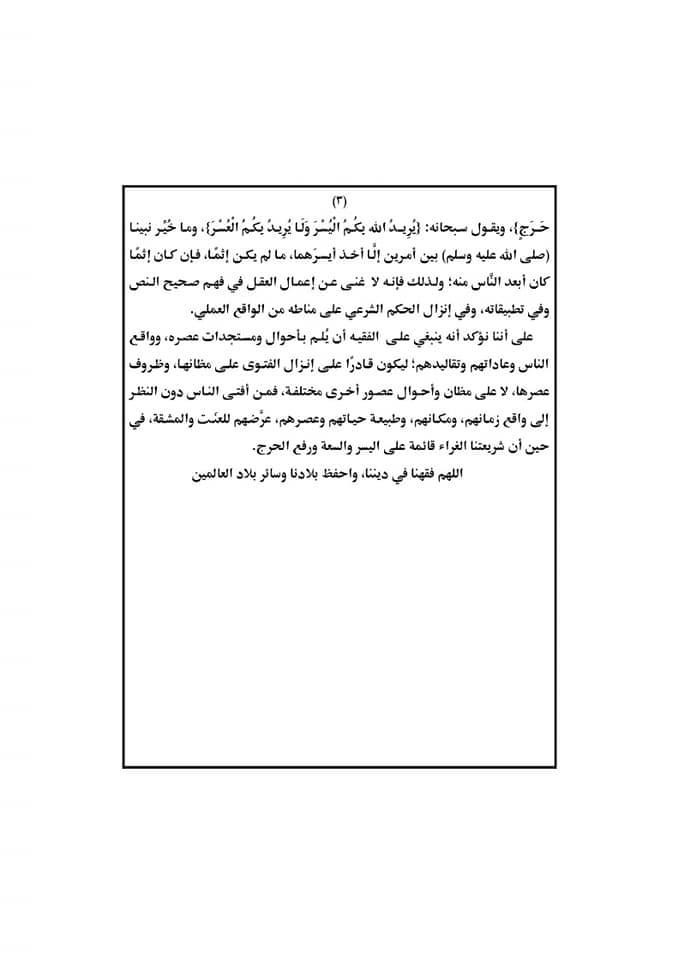 (٣)
حَـرَجٍ}، ويقـول سـبحانه: {يُرِيـدُ الله بِكُـمُ الْيُسْـرَ وَلَـا يُرِيـدُ بِكُـمُ الْعُسْـرَ}، ومـا خُيِّـر نبينـا
(صلى الله عليه وسلم) بين أمـرين إلَّـا أخـذ أيسـرَهما، مـا لـم يكـن إثمًـا، فـإن كـان إثمًـا
كان أبعد النَّاس منه؛ ولـذلك فإنـه لا غنـى عـن إعمـال العقـل فـي فهـم صـحيح الـنص
وفي تطبيقاته، وفي إنزال الحكم الشرعي على مناطه من الواقع العملي.
على أننا نؤكد أنه ينبغي علـى الفقيـه أن يُلـم بـأحوال ومسـتجدات عصـره، وواقـع
الناس وعاداتهم وتقاليدهم؛ ليكـون قـادرًا علـى إنـزال الفتـوى علـى مظانهـا، وظـروف
عصرها، لا على مظان وأحـوال عصـور أخـرى مختلفـة، فمـن أفتـى النـاس دون النظـر
إلى واقع زمـانهم، ومكـانهم، وطبيعـة حيـاتهم وعصـرهم، عرَّضـهم للعنَـت والمشـقة، في
حين أن شريعتنا الغراء قائمة على اليسر والسعة ورفع الحرج.
اللهم فقهنا في ديننا، واحفظ بلادنا وسائر بلاد العالمين